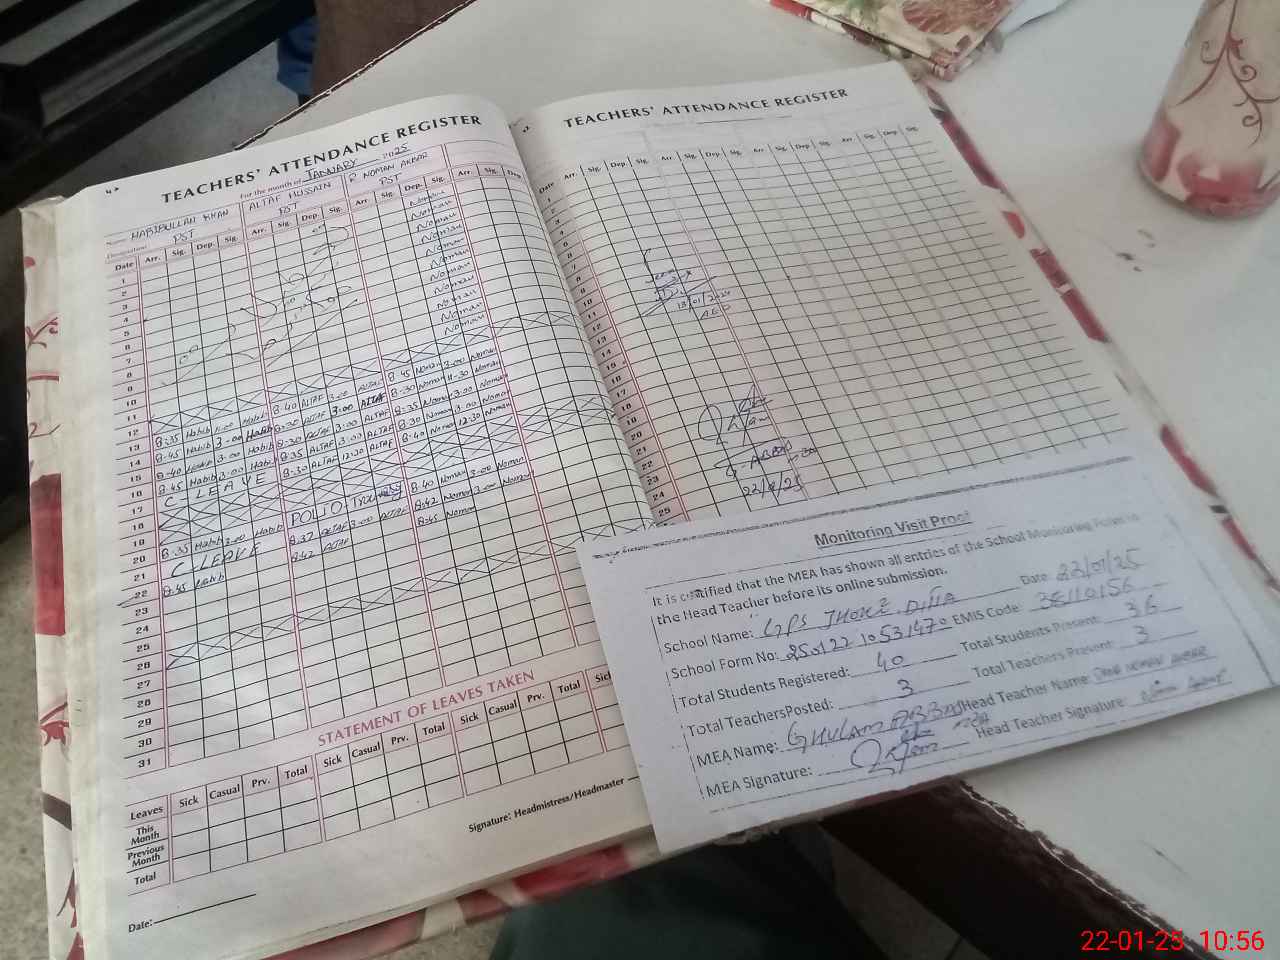 TEACHERS' ATTENDANCE REGISTER
For the month of JANUARY 2025
Name HABIBULLAH KHAN ALTAF HUSSAIN R NOMAN AKBAR
Designation PST PST PST
Date Arr. Sig. Dep. Sig. Arr. Sig. Dep. Sig. Arr. Sig. Dep. Sig. Arr. Sig. Dep.
1 Noman
2 Noman
3 Noman
4 Noman
5 Noman
6 Noman
7 Noman
8 Noman
9 Noman
10 Noman
11
12
13 8:35 Habib 3:00 Habib 8:40 ALTAF 3:00 ALTAF 8:45 Noman 3:00 Noman
14 8:45 Habib 3:00 Habib 8:30 ALTAF 3:00 ALTAF 8:30 Noman 11:30 Noman
15 8:40 Habib 3:00 Habib 8:30 ALTAF 3:00 ALTAF 8:35 Noman 3:00 Noman
16 8:45 Habib 3:00 Habib 8:35 ALTAF 3:00 ALTAF 8:30 Noman 3:00 Noman
17 C-LEAVE 8:30 ALTAF 12:30 ALTAF 8:40 Noman 12:30 Noman
18
19
20 8:35 Habib 3:00 Habib POLIO 8:40 Noman 3:00 Noman
21 C-LEAVE 8:37 ALTAF 3:00 ALTAF 8:42 Noman 3:00 Noman
22 8:45 Habib 8:42 ALTAF 8:45 Noman
23
24
25
26
27
28
29
30
31
STATEMENT OF LEAVES TAKEN
Leaves Sick Casual Prv. Total Sick Casual Prv. Total Sick Casual Prv. Total
This Month
Previous Month
Total
Date:
Signature: Headmistress/Headmaster
TEACHERS' ATTENDANCE REGISTER
Date Arr. Sig. Dep. Sig. Arr. Sig. Dep. Sig. Arr. Sig. Dep. Sig. Arr. Sig. Dep. Sig.
1
2
3
4
5
6
7
8
9
10
11
12
13
14
15
16
17
18
19
20
21
22
23
24
25
AEO
22/01/25
Monitoring Visit Proof
It is certified that the MEA has shown all entries of the School Monitoring Form to
the Head Teacher before its online submission.
School Name: GPS THOKE DITTA Date: 22/01/25
School Form No: 25012210531470 EMIS Code: 38110156
Total Students Registered: 40 Total Students Present: 36
Total TeachersPosted: 3 Total Teachers Present: 3
MEA Name: GHULAM ABBAS Head Teacher Name: NOMAN AKBAR
MEA Signature: Head Teacher Signature:
22-01-25 10:56